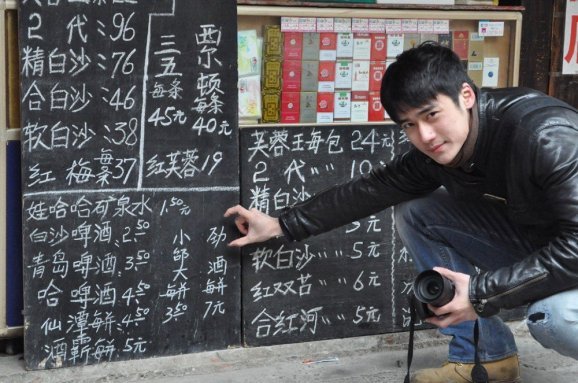 2 代:96
精白沙:76
合白沙:46
软白沙:38
红梅每条37
三五每条45元
西尔顿每条40元
红芙蓉19
娃哈哈矿泉水 1.50元
白沙啤酒:2.50
青岛啤酒:3.50
哈啤酒:4.50
仙潭每瓶:4.50
酒霸每瓶5元
小邵大每瓶3.50
劲酒每瓶7元
芙蓉王每包24元
2 代 〃〃 10
精白沙
软白沙 〃〃 5元
红双喜 〃〃 6元
合红河 〃〃 5元